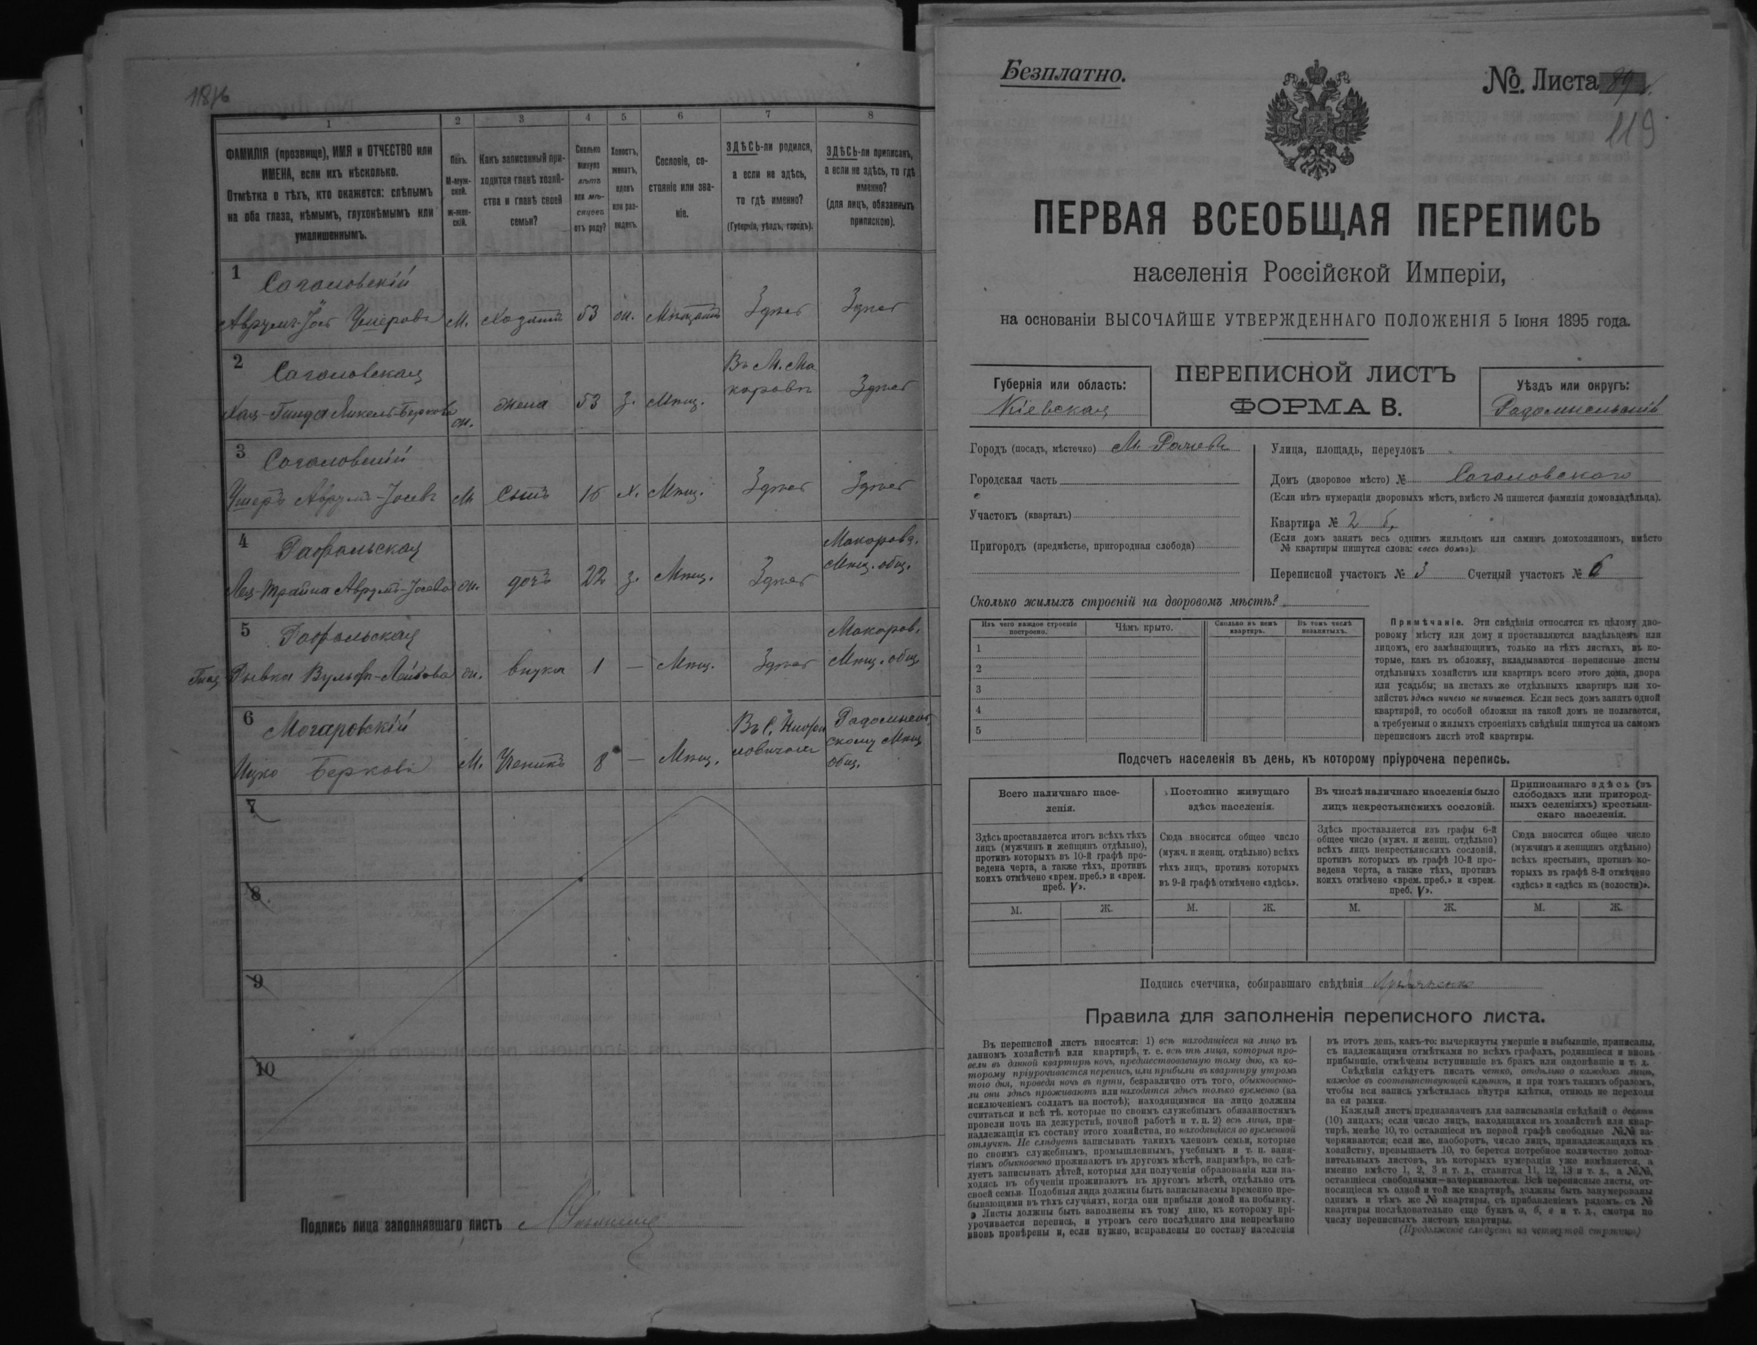 118
1
2
3
4
5
6
7
8
ФАМИЛІЯ (прозвище), ИМЯ и ОТЧЕСТВО или
ИМЕНА, если ихъ нѣсколько.
Отмѣтка о тѣхъ, кто окажется: слѣпымъ
на оба глаза, нѣмымъ, глухонѣмымъ или
умалишеннымъ.
Полъ.
М-муж-
ской.
ж-жен-
скій.
Какъ записанный при-
ходится главѣ хозяй-
ства и главѣ своей
семьи?
Сколько
минуло
лѣтъ
или мѣ-
сяцевъ
отъ роду?
Холостъ,
женатъ,
вдовъ
или раз-
веденъ.
Сословіе, со-
стояніе или зва-
ніе.
ЗДѢСЬ-ли родился,
а если не здѣсь,
то гдѣ именно?
(Губернія, уѣздъ, городъ).
ЗДѢСЬ-ли приписанъ,
а если не здѣсь, то гдѣ
именно?
(для лицъ, обязанныхъ
припискою).
1
Согаловскій
Аврумъ-Іось Ушеровъ М. Хозяинъ 53 ж. Мѣщанинъ Здѣсь Здѣсь
2
Согаловская
ж. жена 53 з. Мѣщ. Въ М. Ма
каровѣ Здѣсь
3
Согаловскій
Ушеръ Аврумъ-Іосевъ М. Сынъ 15 х. Мѣщ. Здѣсь Здѣсь
4
ж. дочь 22 з. Мѣщ. Здѣсь Макаровс.
Мѣщ. общ.
5
Вульфъ-Лейбова ж. внука 1 — Мѣщ. Здѣсь Макаров.
Мѣщ. общ.
6
Могаровскій
Ицко Берковъ М. Ученикъ 8 — Мѣщ. Радомысль
скому Мѣщ.
общ.
7
8
9
10
Подпись лица заполнявшаго листъ
Безплатно.
№. Листа
119
ПЕРВАЯ ВСЕОБЩАЯ ПЕРЕПИСЬ
населенія Россійской Имперіи,
на основаніи ВЫСОЧАЙШЕ УТВЕРЖДЕННАГО ПОЛОЖЕНІЯ 5 Іюня 1895 года.
Губернія или область:
Кіевская
ПЕРЕПИСНОЙ ЛИСТЪ
ФОРМА В.
Уѣздъ или округъ:
Радомысльскій
Городъ (посадъ, мѣстечко) М.
Городская часть
Участокъ (кварталъ)
Пригородъ (предмѣстье, пригородная слобода)
Улица, площадь, переулокъ
Домъ (дворовое мѣсто) № Согаловскаго
(Если нѣтъ нумераціи дворовыхъ мѣстъ, вмѣсто № пишется фамилія домовладѣльца).
Квартира № 2
(Если домъ занятъ весь однимъ жильцомъ или самимъ домохозяиномъ, вмѣсто
№ квартиры пишутся слова: «весь домъ»).
Переписной участокъ № 3 Счетный участокъ № 6
Сколько жилыхъ строеній на дворовомъ мѣстѣ?
Изъ чего каждое строеніе
построено.
Чѣмъ крыто.
Сколько въ немъ
квартиръ.
Въ томъ числѣ
незанятыхъ.
1
2
3
4
5
Примѣчаніе. Эти свѣдѣнія относятся къ цѣлому дво-
ровому мѣсту или дому и проставляются владѣльцемъ или
лицомъ, его замѣняющимъ, только на тѣхъ листахъ, въ ко-
торые, какъ въ обложку, вкладываются переписные листы
отдѣльныхъ хозяйствъ или квартиръ всего этого дома, двора
или усадьбы; на листахъ же отдѣльныхъ квартиръ или хо-
зяйствъ здѣсь ничего не пишется. Если весь домъ занятъ одной
квартирой, то особой обложки на такой домъ не полагается,
а требуемыя о жилыхъ строеніяхъ свѣдѣнія пишутся на самомъ
переписномъ листѣ этой квартиры.
Подсчетъ населенія въ день, къ которому пріурочена перепись.
Всего наличнаго насе-
ленія.
Здѣсь проставляется итогъ всѣхъ тѣхъ
лицъ (мужчинъ и женщинъ отдѣльно),
противъ которыхъ въ 10-й графѣ про-
ведена черта, а также тѣхъ, противъ
коихъ отмѣчено «врем. преб.» и «врем.
преб. V».
Постоянно живущаго
здѣсь населенія.
Сюда вносится общее число
(мужч. и женщ. отдѣльно) всѣхъ
тѣхъ лицъ, противъ которыхъ
въ 9-й графѣ отмѣчено «здѣсь».
Въ числѣ наличнаго населенія было
лицъ некрестьянскихъ сословій.
Здѣсь проставляется изъ графы 6-й
общее число (мужч. и женщ. отдѣльно)
всѣхъ лицъ некрестьянскихъ сословій,
противъ которыхъ въ графѣ 10-й про-
ведена черта, а также тѣхъ, противъ
коихъ отмѣчено «врем. преб.» и «врем.
преб. V».
Приписаннаго здѣсь (въ
слободахъ или пригород-
ныхъ селеніяхъ) крестьян-
скаго населенія.
Сюда вносится общее число
(мужчинъ и женщинъ отдѣльно)
всѣхъ крестьянъ, противъ ко-
торыхъ въ графѣ 8-й отмѣчено
«здѣсь» и «здѣсь къ (волости)».
М. Ж. М. Ж. М. Ж. М. Ж.
Подпись счетчика, собиравшаго свѣдѣнія
Правила для заполненія переписного листа.
Въ переписной листъ вносятся: 1) всѣ находящіеся на лицо въ
данномъ хозяйствѣ или квартирѣ, т. е. всѣ тѣ лица, которыя про-
вели въ данной квартирѣ ночь, предшествовавшую тому дню, къ ко-
торому пріурочивается перепись, или прибыли въ квартиру утромъ
того дня, проведя ночь въ пути, безразлично отъ того, обыкновенно-
ли они здѣсь проживаютъ или находятся здѣсь только временно (за
исключеніемъ солдатъ на постоѣ); находящимися на лицо должны
считаться и всѣ тѣ, которые по своимъ служебнымъ обязанностямъ
провели ночь на дежурствѣ, ночной работѣ и т. п. 2) всѣ лица, при-
надлежащія къ составу этого хозяйства, но находящіяся во временной
отлучкѣ. Не слѣдуетъ записывать такихъ членовъ семьи, которые
по своимъ служебнымъ, промышленнымъ, учебнымъ и т. п. заня-
тіямъ обыкновенно проживаютъ въ другомъ мѣстѣ, напримѣръ, не слѣ-
дуетъ записывать дѣтей, которыя для полученія образованія или на-
ходясь въ обученіи проживаютъ въ другомъ мѣстѣ, отдѣльно отъ
своей семьи. Подобныя лица должны быть записываемы временно пре-
бывающими въ тѣхъ случаяхъ, когда они прибыли домой на побывку.
Листы должны быть заполнены къ тому дню, къ которому прі-
урочивается перепись, и утромъ сего послѣдняго дня непремѣнно
вновь провѣрены и, если нужно, исправлены по составу населенія
въ этотъ день, какъ-то: вычеркнуты умершіе и выбывшіе, приписаны,
съ надлежащими отмѣтками во всѣхъ графахъ, родившіеся и вновь
прибывшіе, отмѣчены вступившіе въ бракъ или овдовѣвшіе и т. д.
Свѣдѣнія слѣдуетъ писать четко, отдѣльно о каждомъ лицѣ,
каждое въ соотвѣтствующей клѣткѣ, и при томъ такимъ образомъ,
чтобы вся запись умѣстилась внутри клѣтки, отнюдь не переходя
за ея рамки.
Каждый листъ предназначенъ для записыванія свѣдѣній о десяти
(10) лицахъ; если число лицъ, находящихся въ хозяйствѣ или квар-
тирѣ, менѣе 10, то оставшіеся въ первой графѣ свободные №№ за-
черкиваются; если же, наоборотъ, число лицъ, принадлежащихъ къ
хозяйству, превышаетъ 10, то берется потребное количество допол-
нительныхъ листовъ, въ которыхъ нумерація уже измѣняется, а
именно вмѣсто 1, 2, 3 и т. д., ставится 11, 12, 13 и т. д., а №№,
оставшіеся свободными—зачеркиваются. Всѣ переписные листы, от-
носящіеся къ одной и той же квартирѣ, должны быть занумерованы
однимъ и тѣмъ же № квартиры, съ прибавленіемъ рядомъ съ №
квартиры послѣдовательно еще буквъ а, б, в и т. д., смотря по
числу переписныхъ листовъ квартиры.
(Продолженіе слѣдуетъ на четвертой страницѣ)